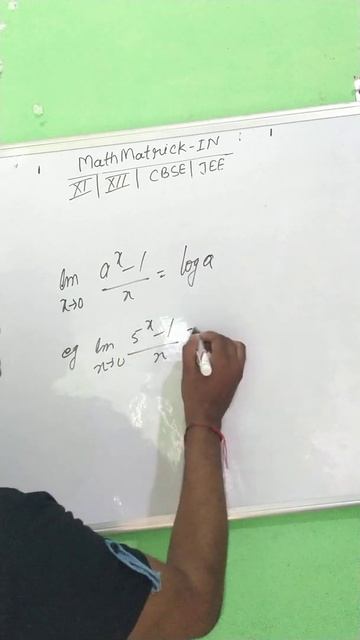 MathMatrick-IN
XI | XII | CBSE | JEE
lim x→0 a^x-1/x = log a
eg lim x→0 5^x-1/x =